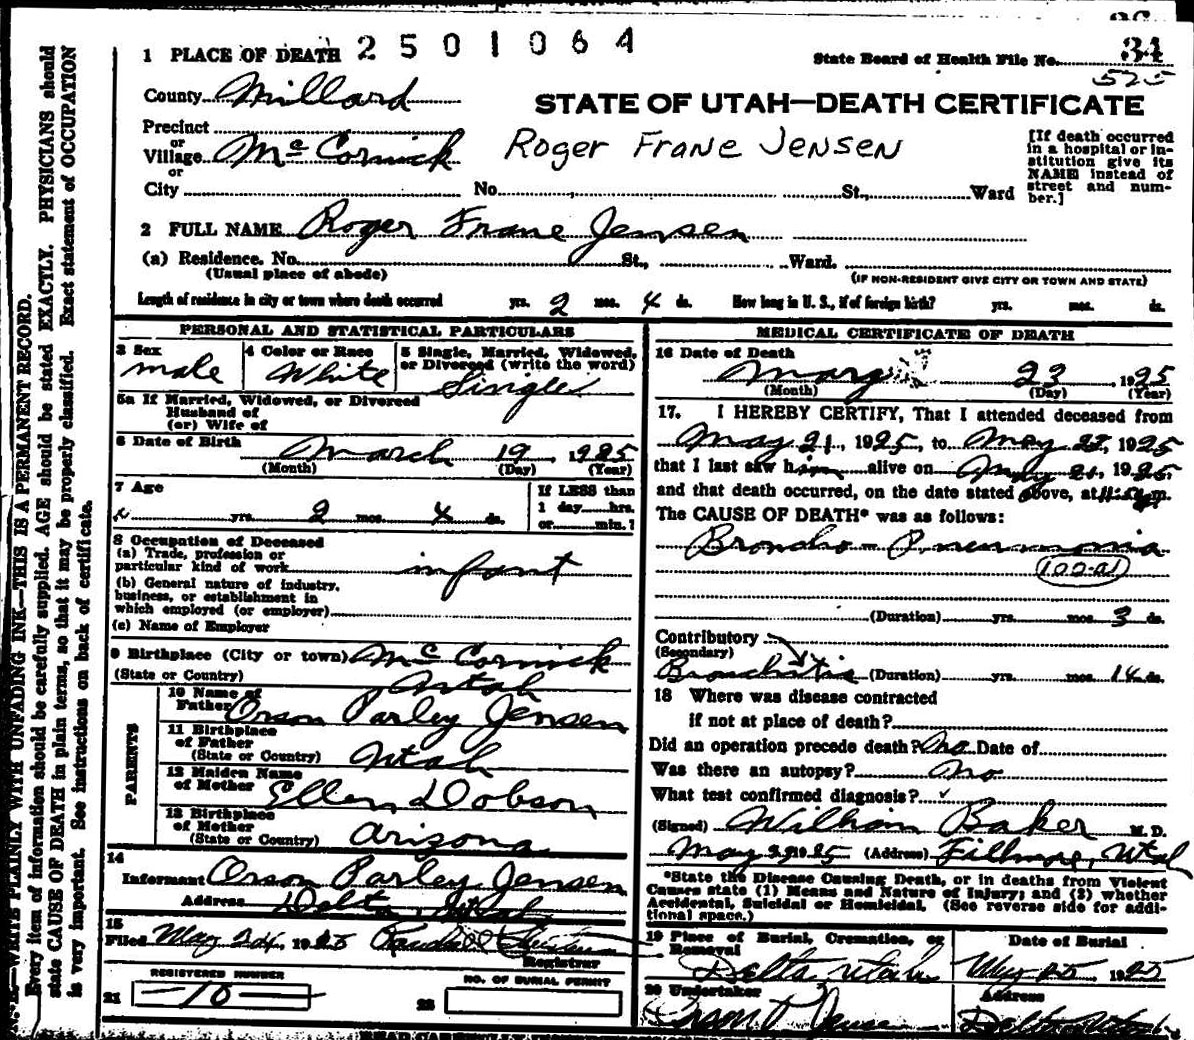 2501064
1 PLACE OF DEATH
State Board of Health File No. 34
525
County Millard
STATE OF UTAH—DEATH CERTIFICATE
Precinct
or
Village McCornick
Roger Frane Jensen
or
City No. St., Ward
[If death occurred
in a hospital or in-
stitution give its
NAME instead of
street and num-
ber.]
2 FULL NAME Roger Frane Jensen
(a) Residence. No. St., Ward.
(Usual place of abode)
(IF NON-RESIDENT GIVE CITY OR TOWN AND STATE)
Length of residence in city or town where death occurred yrs. 2 mos. 4 ds. How long in U. S., if of foreign birth? yrs. mos. ds.
PERSONAL AND STATISTICAL PARTICULARS
3 Sex
male
4 Color or Race
White
5 Single, Married, Widowed,
or Divorced (write the word)
Single
5a If Married, Widowed, or Divorced
Husband of
(or) Wife of
6 Date of Birth
March 19, 1925
(Month) (Day) (Year)
7 Age
yrs. 2 mos. 4 ds.
If LESS than
1 day hrs.
or min.?
8 Occupation of Deceased
(a) Trade, profession or
particular kind of work infant
(b) General nature of industry,
business, or establishment in
which employed (or employer)
(c) Name of Employer
9 Birthplace (City or town) McCornick
(State or Country) Utah
PARENTS
10 Name of
Father Orson Parley Jensen
11 Birthplace
of Father
(State or Country) Utah
12 Maiden Name
of Mother Ellen Dobson
13 Birthplace
of Mother
(State or Country) Arizona
14
Informant Orson Parley Jensen
Address Delta, Utah
15
Filed May 24, 1925
Registrar
REGISTERED NUMBER
21 —10—
NO. OF BURIAL PERMIT
22
MEDICAL CERTIFICATE OF DEATH
16 Date of Death
May 23, 1925
(Month) (Day) (Year)
17. I HEREBY CERTIFY, That I attended deceased from
May 21, 1925, to May 1925
that I last saw him alive on May 21, 1925
and that death occurred, on the date stated above, at m.
The CAUSE OF DEATH* was as follows:
Broncho-Pneumonia
100-a1
(Duration) yrs. mos. 3 ds.
Contributory
(Secondary)
Bronchitis (Duration) yrs. mos. 14 ds.
18 Where was disease contracted
if not at place of death?
Did an operation precede death? No Date of
Was there an autopsy? No
What test confirmed diagnosis? ✓
(Signed) William Baker M. D.
May 1925 (Address) Fillmore, Utah
*State the Disease Causing Death, or in deaths from Violent
Causes state (1) Means and Nature of Injury; and (2) whether
Accidental, Suicidal or Homicidal. (See reverse side for addi-
tional space.)
19 Place of Burial, Cremation, or
Removal
Delta Utah
Date of Burial
May 25 1925
20 Undertaker
Orson P Jensen
Address
Delta Utah
WRITE PLAINLY WITH UNFADING INK—THIS IS A PERMANENT RECORD.
Every item of information should be carefully supplied. AGE should be stated EXACTLY. PHYSICIANS should
state CAUSE OF DEATH in plain terms, so that it may be properly classified. Exact statement of OCCUPATION
is very important. See instructions on back of certificate.